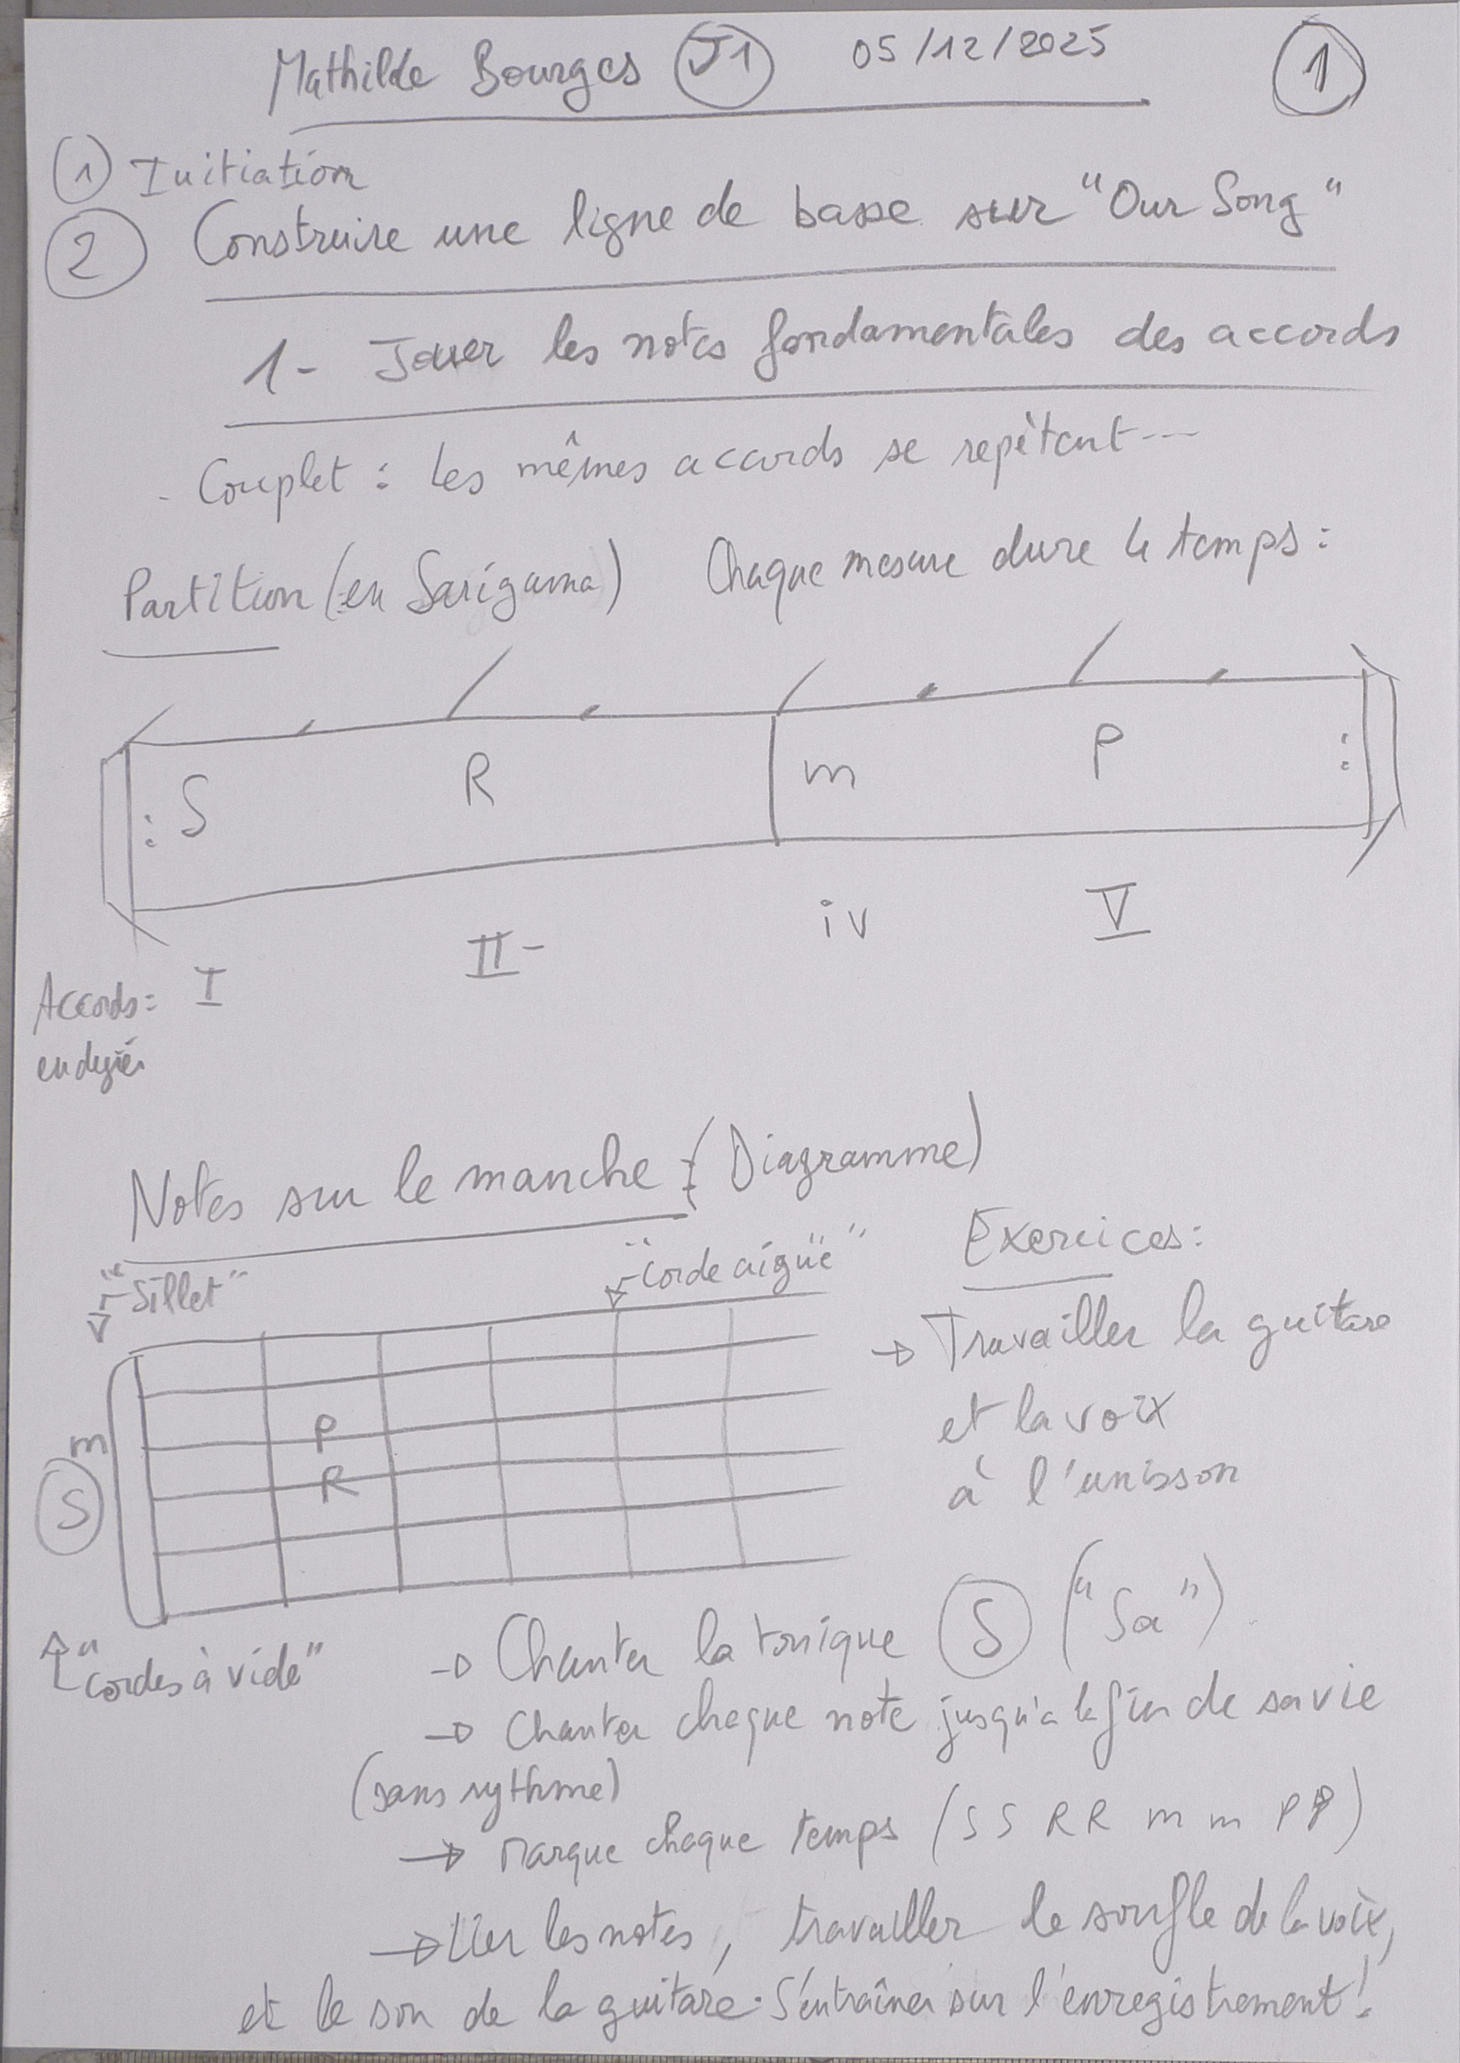 Mathilde Bourges J1 05/12/2025 1
1 Initiation
2 Construire une ligne de basse sur "Our Song"
1 - Jouer les notes fondamentales des accords
- Couplet : Les mêmes accords se repètent ---
Partition (en Sarigama) Chaque mesure dure 4 temps :
: S R m P :
I II- iv V
Accords =
en degrés
Notes sur le manche : (Diagramme)
"Sillet" "Corde aigüe"
Exercices :
→ Travailler la guitare
et la voix
à l'unisson
m P
S R
"Cordes à vide"
→ Chanter la tonique S ("Sa")
→ Chanter chaque note jusqu'à la fin de sa vie
(sans rythme)
→ Marque chaque temps (S S R R m m P P)
→ Lier les notes, travailler le souffle de la voix,
et le son de la guitare. S'entraîner sur l'enregistrement !